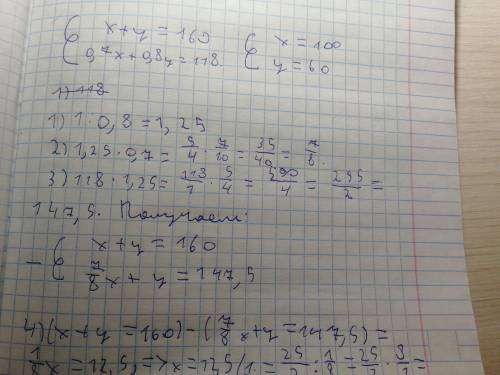 { x+y=160 { x=100
0,7x+0,8y=118 y=60
1) 118
1) 1·0,8=1,25
2) 1,25·0,7=5/4·7/10=35/40=7/8.
3) 118·1,25=118/1·5/4=590/4=295/2=
147,5. Получаем:
- { x+y=160
7/8x+y=147,5
4) (x+y=160)-(7/8x+y=147,5)=
1/8x=12,5)=>x=12,5/1.=25/2:1/8=25/2·8/1=